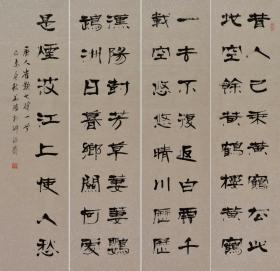 昔人已乘黃鶴去此
地空餘黃鶴樓黃鶴
一去不復返白雲千
載空悠悠晴川歷歷
漢陽樹芳草萋萋鸚
鵡洲日暮鄉關何處
是煙波江上使人愁
唐人崔顥七律一首